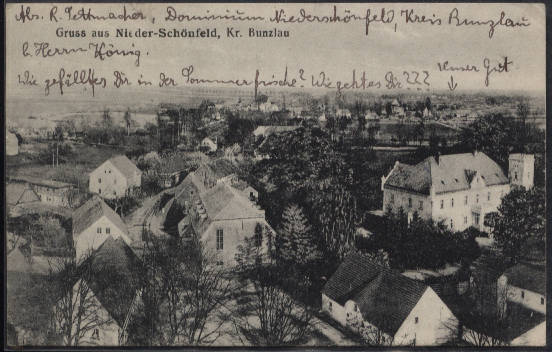 Abs. R. Tettmacher, Dominium Niederschönfeld, Kreis Bunzlau
Gruss aus Nieder-Schönfeld, Kr. Bunzlau
b. Herrn König.
Unser Gut
Wie gefällt es Dir in der Sommerfrische? Wie geht es Dir???